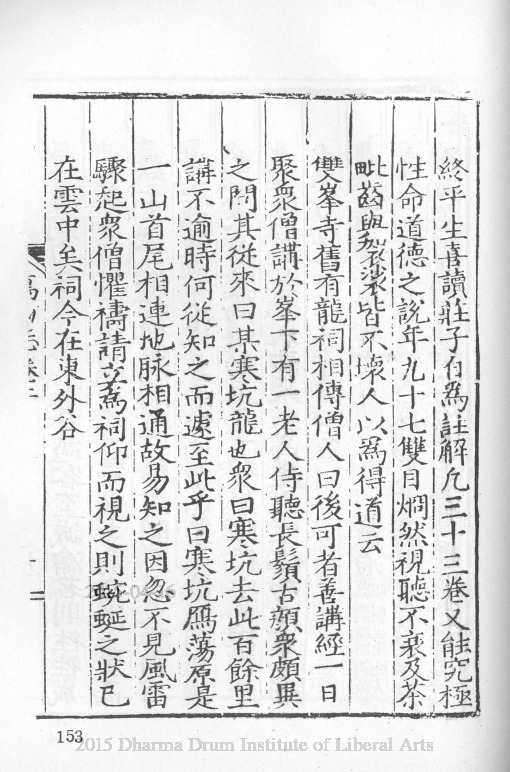 終平生喜讀莊子自爲註解凡三十三卷又能究極
性命道德之說年九十七雙目烱然視聽不衰及荼
毗齒與袈裟皆不壞人以爲得道云
雙峯寺舊有龍祠相傳僧人曰後可者善講經一日
聚衆僧講於峯下有一老人侍聽長鬚古顔衆頗異
之問其從來曰某寒坑龍也衆曰寒坑去此百餘里
講不逾時何從知之而遽至此乎曰寒坑鴈蕩原是
一山首尾相連地脉相通故易知之因忽不見風雷
驟起衆僧懼禱請立爲祠仰而視之則蜿蜒之狀已
在雲中矣祠今在東外谷
153
2015 Dharma Drum Institute of Liberal Arts